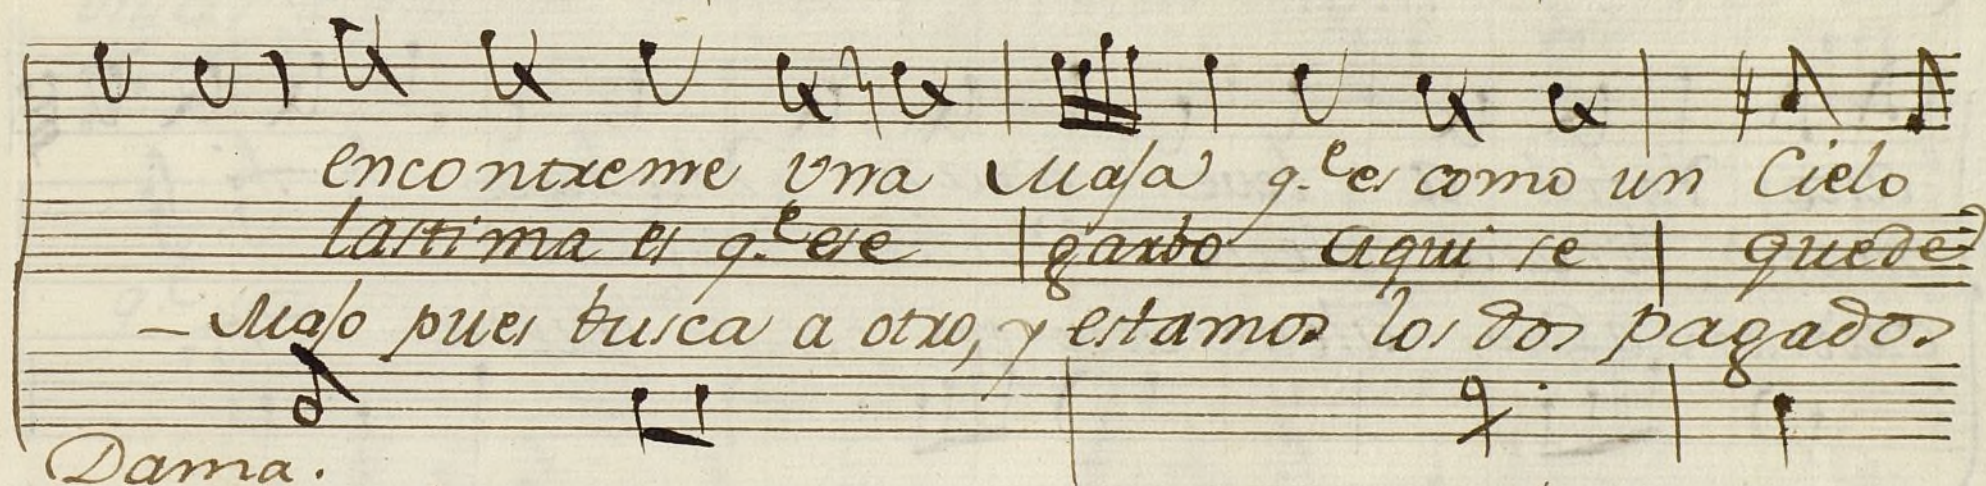 encontreme una Maja q.e es como un Cielo
lastima es q.e ese garbo aqui se quede
- Majo pues busca a otro, y estamos los dos pagados
Dama.